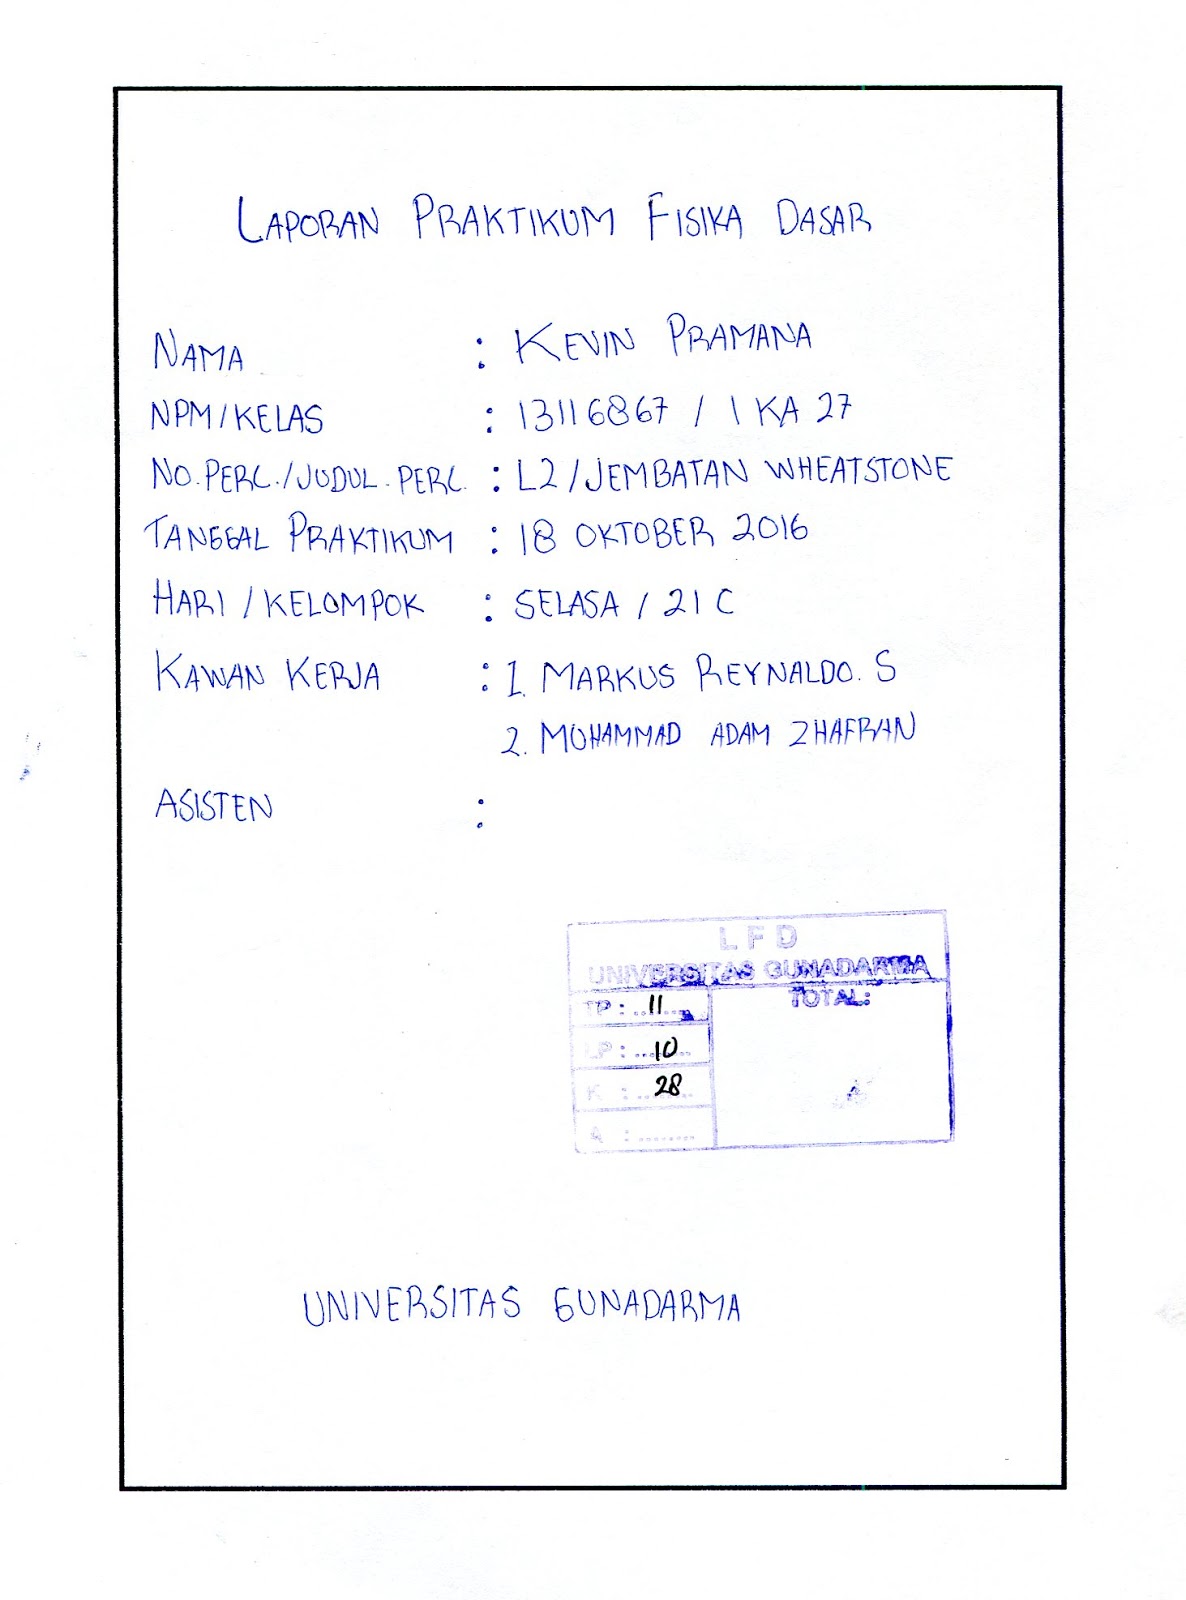 LAPORAN PRAKTIKUM FISIKA DASAR
NAMA : KEVIN PRAMANA
NPM/KELAS : 13116867 / 1 KA 27
NO.PERC./JUDUL.PERC. : L2/JEMBATAN WHEATSTONE
TANGGAL PRAKTIKUM : 18 OKTOBER 2016
HARI / KELOMPOK : SELASA / 21 C
KAWAN KERJA : 1. MARKUS REYNALDO. S
2. MUHAMMAD ADAM ZHAFRAN
ASISTEN :
L F D
UNIVERSITAS GUNADARMA
TP : 11 TOTAL:
LP : 10
K : 28
A : ........
UNIVERSITAS GUNADARMA